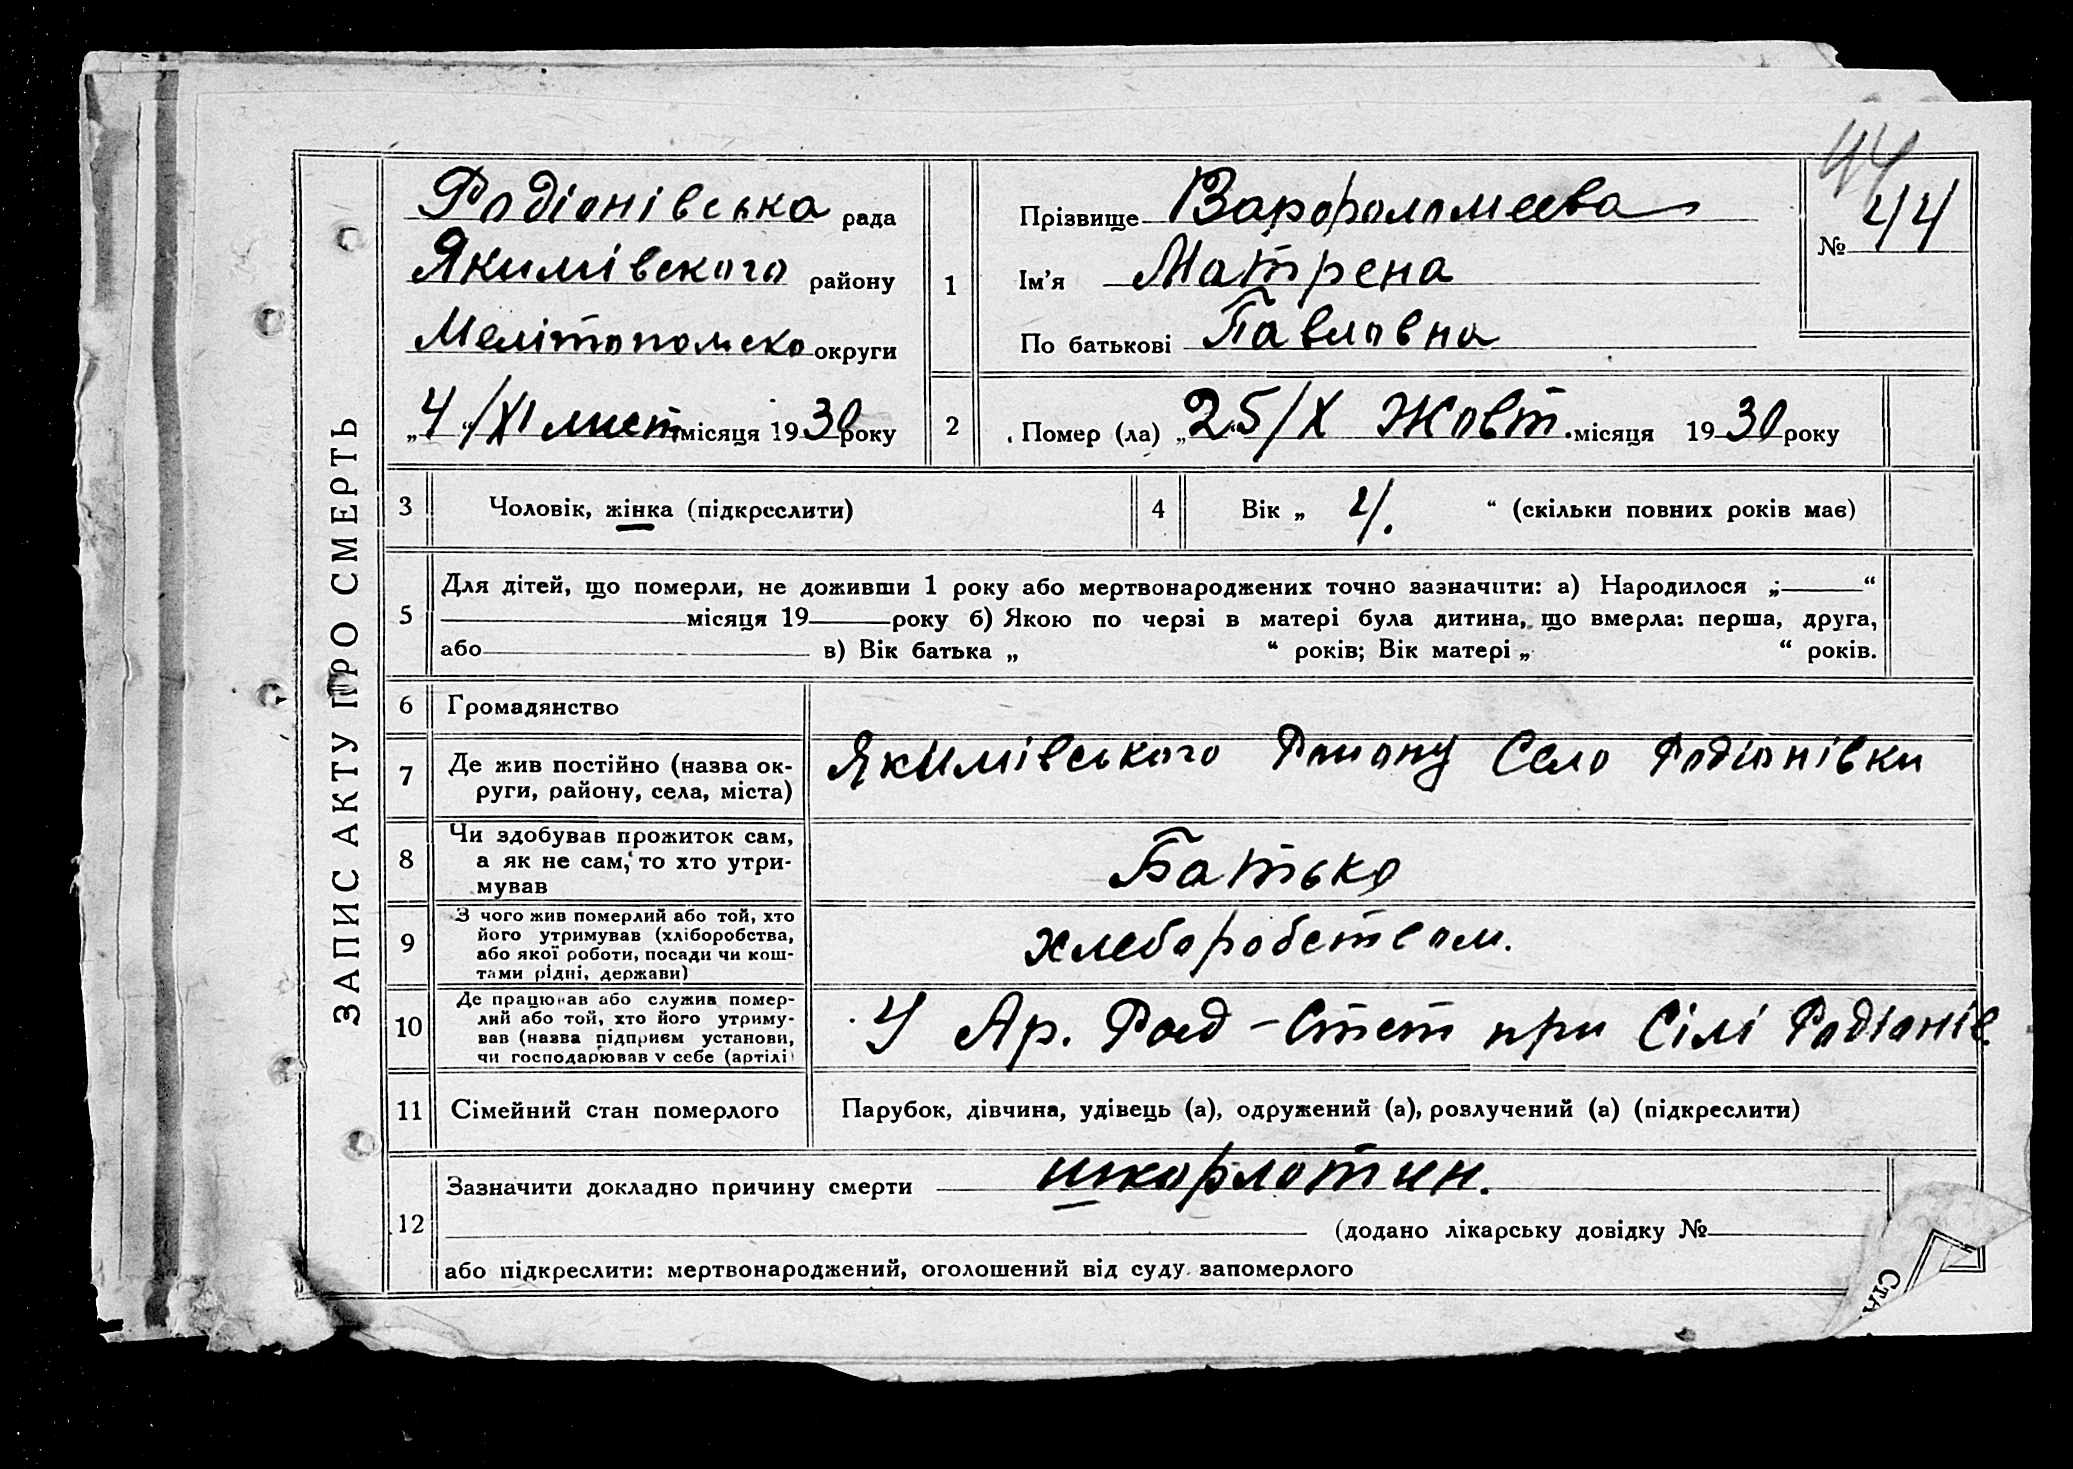 44
ЗАПИС АКТУ ПРО СМЕРТЬ
Родіонівська рада
Якимівського району
Мелітопольско округи
„4“/XI лист місяця 1930 року
1
Прізвище Варфоломеева
Ім’я Матрена
По батькові Павловна
№ 44
2
Помер (ла) „25/X Жовт. місяця 1930 року
3 Чоловік, жінка (підкреслити)
4 Вік „ 4. “ (скільки повних років має)
5 Для дітей, що померли, не доживши 1 року або мертвонароджених точно зазначити: а) Народилося „ “
місяця 19 року б) Якою по черзі в матері була дитина, що вмерла: перша, друга,
або в) Вік батька „ “ років; Вік матері „ “ років.
6 Громадянство
7 Де жив постійно (назва ок-
руги, району, села, міста)
Якимівського Району Село Родіонівки
8 Чи здобував прожиток сам,
а як не сам, то хто утри-
мував
Батько
9 З чого жив померлий або той, хто
його утримував (хліборобства,
або якої роботи, посади чи кош-
тами рідні, держави)
хлеборобством.
10 Де працював або служив помер-
лий або той, хто його утриму-
вав (назва підприєм установи,
чи господарював у себе (артілі)
У Ар. при Сілі Родіонів.
11 Сімейний стан померлого
Парубок, дівчина, удівець (а), одружений (а), розлучений (а) (підкреслити)
12 Зазначити докладно причину смерти шкорлотин.
(додано лікарську довідку №
або підкреслити: мертвонароджений, оголошений від суду запомерлого
СТА